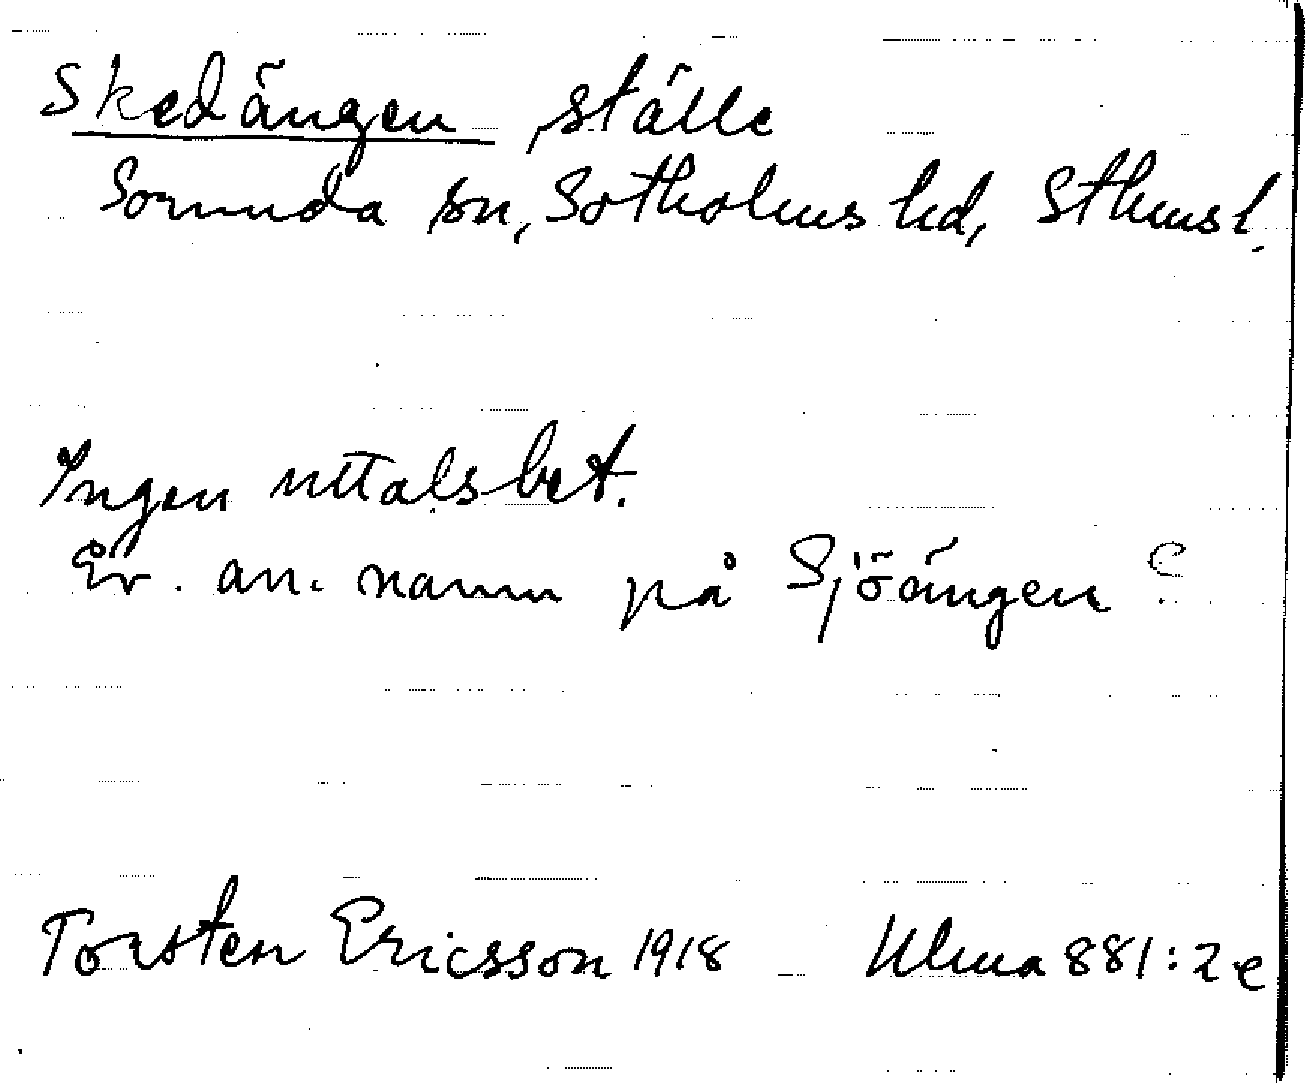 Skedängen, ställe
Sorunda sn, Sotholms hd, Sthms l.
Ingen uttalsbet.
Ev. an. namn på Sjöängen?
Torsten Ericsson 1918 Ulma 881:2e